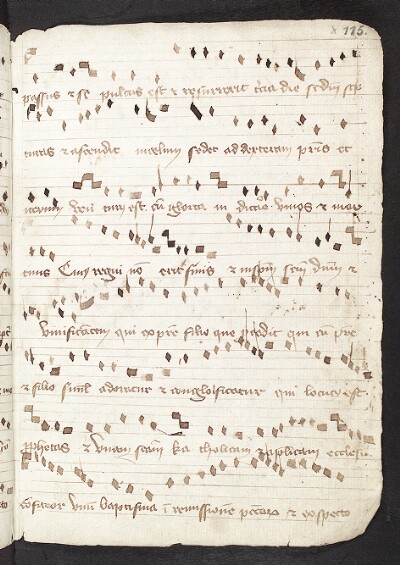 x 115.
passus & se pultus est & resurrexit t'cia die scdm scp
turas & ascendit in celum sedet ad dexteram pris et
iterum ven turus est cu gloria iudicare vivos & mor
tuos Cuius regni no erit finis & in spm scm dnm &
vivificantem qui ex pre filio que procedit qui cu pre
& filio simul adoratur & conglorificatur qui locutus est
pphetas & unam scam ka tholicam & aplicam ecclesia
cofiteor unu baptisma i remissione pctoru & expecto